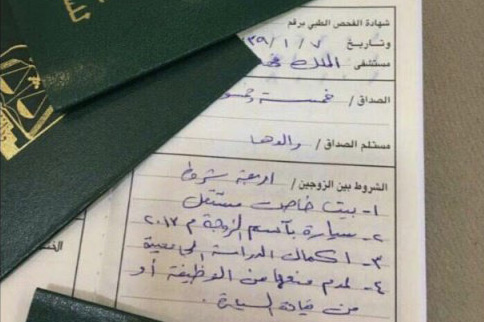 شهادة الفحص الطبي برقم
وتاريخ ٣٩/١/٧
مستشفى الملك
الصداق / خمسة
مستلم الصداق / والدها
الشروط بين الزوجين / اربعة شروط
١- بيت خاص مستقل
٢- سيارة بأسم الزوجة م ٢٠١٧
٣- اكمال الدراسة الجامعية
٤- عدم منعها من الوظيفة أو
من قيادة السيارة .